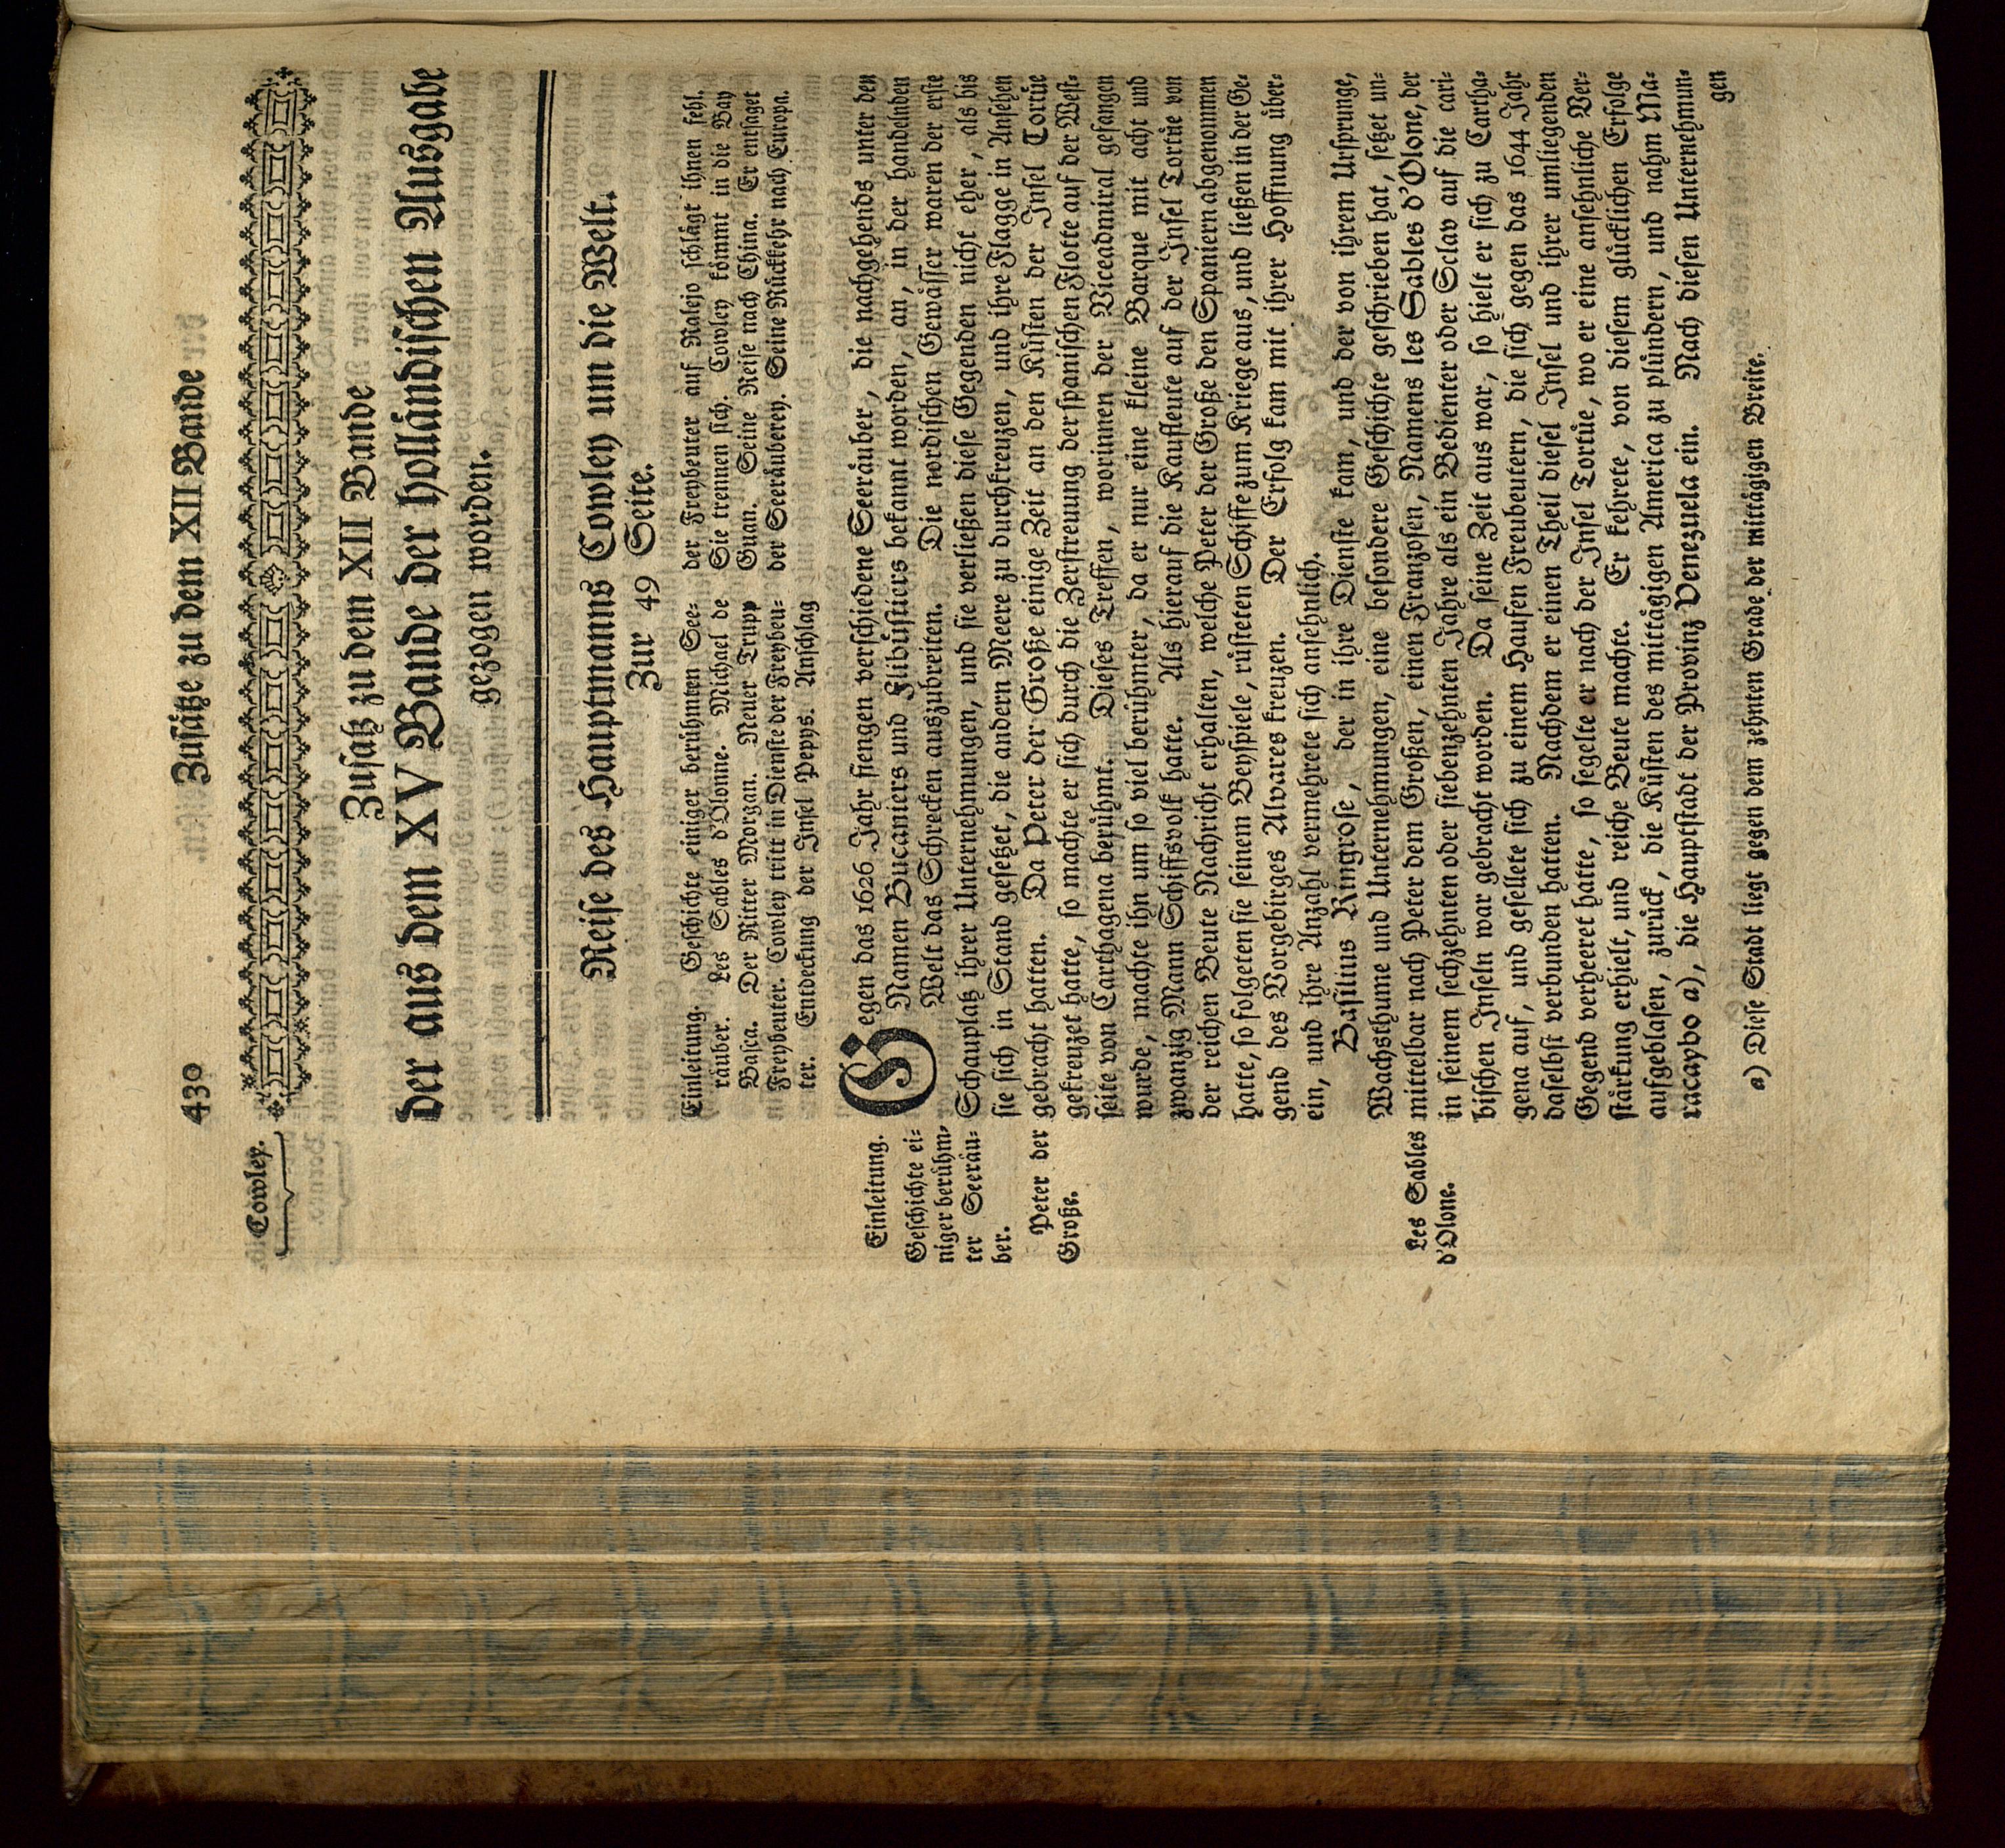 430 Zusätze zu dem XII Bande
Cowley.
Zusatz zu dem XII Bande
der aus dem XV Bande der holländischen Ausgabe
gezogen worden.
Reise des Hauptmanns Cowley um die Welt.
Zur 49 Seite.
Einleitung. Geschichte einiger berühmten See-
räuber. Les Sables d'Olonne. Michael de
Basca. Der Ritter Morgan. Neuer Trupp
Freybeuter. Cowley tritt in Dienste der Freybeu-
ter. Entdeckung der Insel Pepys. Anschlag
der Freybeuter auf Ralejo schlägt ihnen fehl.
Sie trennen sich. Cowley kömmt in die Bay
Guan. Seine Reise nach China. Er entsaget
der Seeräuberey. Seine Rückkehr nach Europa.
Einleitung.
Geschichte ei-
niger berühm-
ter Seeräu-
ber.
Peter der
Große.
Les Sables
d'Olone.
Gegen das 1626 Jahr fiengen verschiedene Seeräuber, die nachgehends unter den
Namen Bucaniers und Flibüstiers bekannt worden, an, in der handelnden
Welt das Schrecken auszubreiten. Die nordischen Gewässer waren der erste
Schauplatz ihrer Unternehmungen, und sie verließen diese Gegenden nicht eher, als bis
sie sich in Stand gesetzet, die andern Meere zu durchkreuzen, und ihre Flagge in Ansehen
gebracht hatten. Da Peter der Große einige Zeit an den Küsten der Insel Tortüe
gekreuzet hatte, so machte er sich durch die Zerstreuung der spanischen Flotte auf der West-
seite von Carthagena berühmt. Dieses Treffen, worinnen der Viceadmiral gefangen
wurde, machte ihn um so viel berühmter, da er nur eine kleine Barque mit acht und
zwanzig Mann Schiffsvolk hatte. Als hierauf die Kaufleute auf der Insel Tortüe von
der reichen Beute Nachricht erhalten, welche Peter der Große den Spaniern abgenommen
hatte, so folgeten sie seinem Beyspiele, rüsteten Schiffe zum Kriege aus, und ließen in der Ge-
gend des Vorgebirges Alvares kreuzen. Der Erfolg kam mit ihrer Hoffnung über-
ein, und ihre Anzahl vermehrete sich ansehnlich.
Basilius Ringrose, der in ihre Dienste kam, und der von ihrem Ursprunge,
Wachsthume und Unternehmungen, eine besondere Geschichte geschrieben hat, setzet un-
mittelbar nach Peter dem Großen, einen Franzosen, Namens les Sables d'Olone, der
in seinem sechzehnten oder siebenzehnten Jahre als ein Bedienter oder Sclav auf die cari-
bischen Inseln war gebracht worden. Da seine Zeit aus war, so hielt er sich zu Cartha-
gena auf, und gesellete sich zu einem Haufen Freubeutern, die sich gegen das 1644 Jahr
daselbst verbunden hatten. Nachdem er einen Theil dieser Insel und ihrer umliegenden
Gegend verheeret hatte, so segelte er nach der Insel Tortüe, wo er eine ansehnliche Ver-
stärkung erhielt, und reiche Beute machte. Er kehrete, von diesem glücklichen Erfolge
aufgeblasen, zurück, die Küsten des mittägigen America zu plündern, und nahm Ma-
racaybo a), die Hauptstadt der Provinz Venezuela ein. Nach diesen Unternehmun-
gen
a) Diese Stadt liegt gegen dem zehnten Grade der mittägigen Breite.